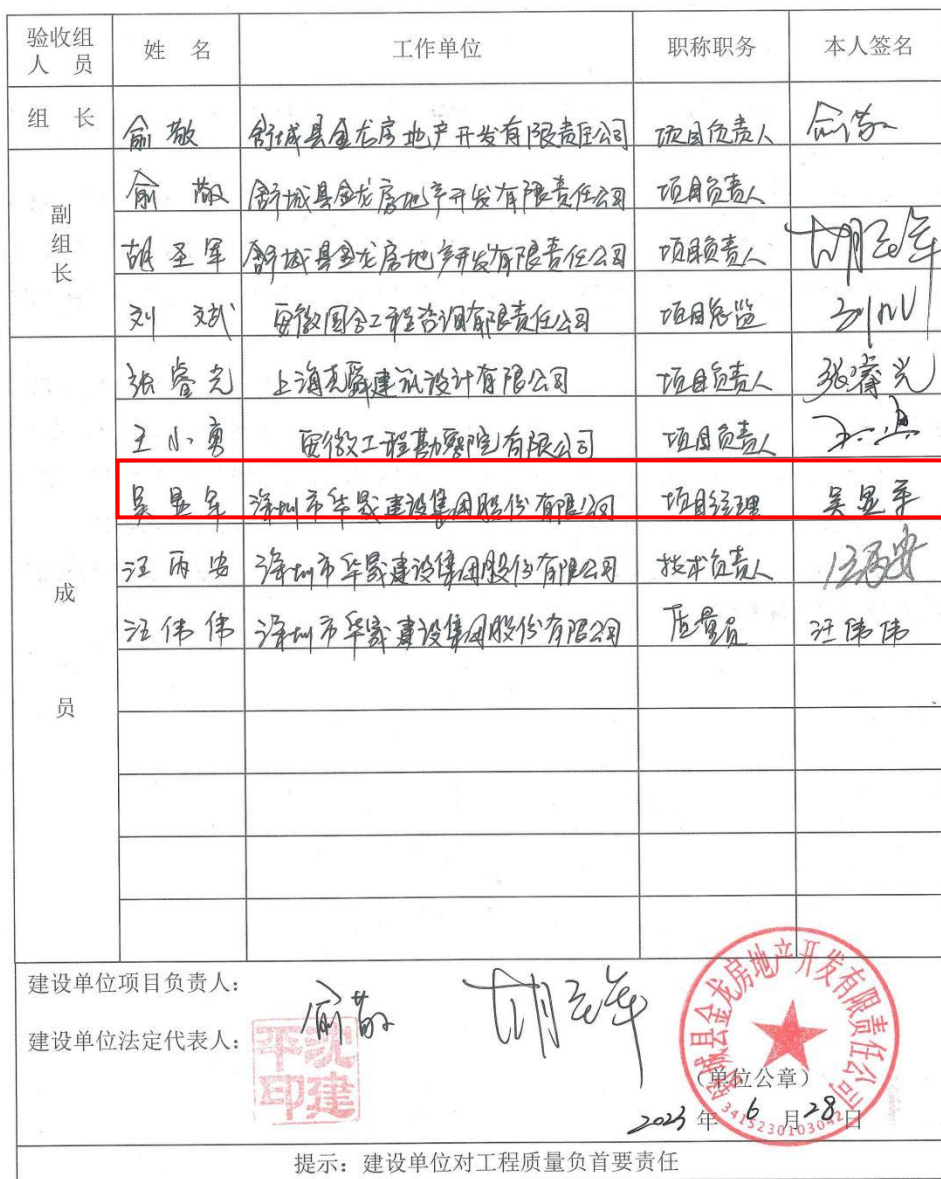 验收组人员 姓名 工作单位 职称职务 本人签名
组长 俞敬 舒城县金龙房地产开发有限责任公司 项目负责人 俞敬
副组长 俞敬 舒城县金龙房地产开发有限责任公司 项目负责人
胡圣军 舒城县金龙房地产开发有限责任公司 项目负责人
刘斌 安徽国合工程咨询有限责任公司 项目总监
成员 张睿光 上海 建筑设计有限公司 项目负责人 张睿光
王小勇 安徽工程勘察院有限公司 项目负责人
吴显军 深圳市华晟建设集团股份有限公司 项目经理 吴显军
汪丙安 深圳市华晟建设集团股份有限公司 技术负责人 汪丙安
汪伟伟 深圳市华晟建设集团股份有限公司 质量员 汪伟伟
建设单位项目负责人: 俞敬
建设单位法定代表人: 沈建平印
舒城县金龙房地产开发有限责任公司
(单位公章)
3415230103042
2023年6月28日
提示:建设单位对工程质量负首要责任